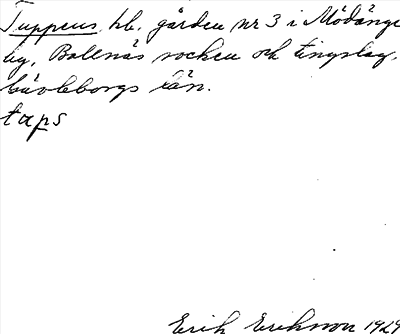 Tuppens, hb. gården nr 3 i Mödänge
by, Bollnäs socken och tingslag,
Gävleborgs län.
taps
Erik Erikson 1929